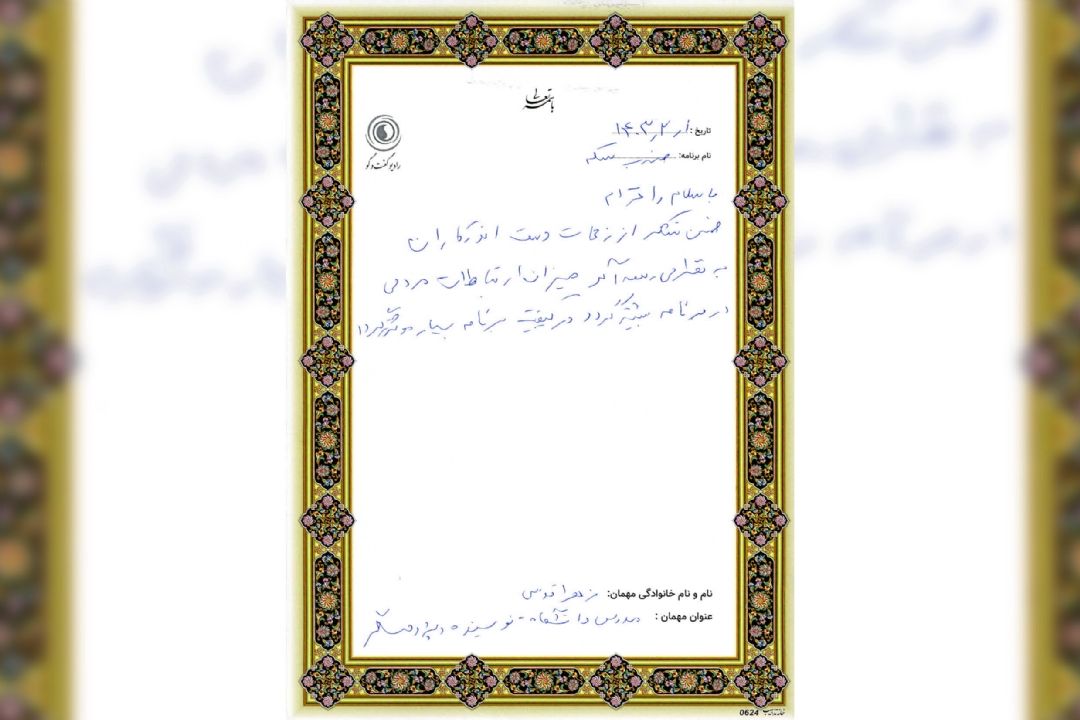 باسمه تعالی
رادیو گفت‌وگو
تاریخ :
نام برنامه:
با سلام و احترام
ضمن تشکر از زحمات دست اندرکاران
به نظر می رسد اگر میزان ارتباطات مردمی
در برنامه بیشتر گردد در کیفیت برنامه بسیار موثر
نام و نام خانوادگی مهمان: زهرا قدوسی
عنوان مهمان : مدرس دانشگاه - نویسنده
0624